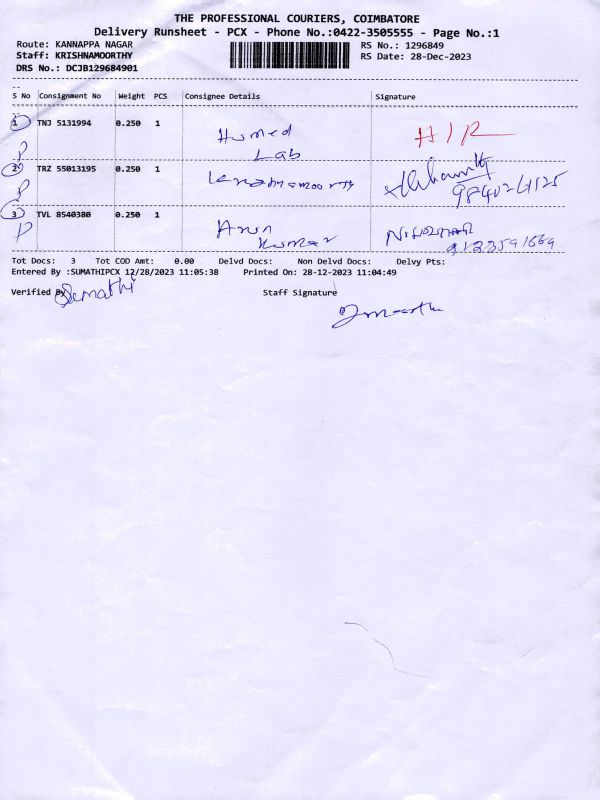 THE PROFESSIONAL COURIERS, COIMBATORE
Delivery Runsheet - PCX - Phone No.:0422-3505555 - Page No.:1
Route: KANNAPPA NAGAR RS No.: 1296849
Staff: KRISHNAMOORTHY RS Date: 28-Dec-2023
DRS No.: DCJB129684901
S No Consignment No Weight PCS Consignee Details Signature
1 TNJ 5131994 0.250 1 Humed
P Lab
2 TRZ 55013195 0.250 1
P
3 TVL 8540380 0.250 1 Arun
P Kumar
Tot Docs: 3 Tot COD Amt: 0.00 Delvd Docs: Non Delvd Docs: Delvy Pts:
Entered By :SUMATHIPCX 12/28/2023 11:05:38 Printed On: 28-12-2023 11:04:49
Verified By Sumathi Staff Signature